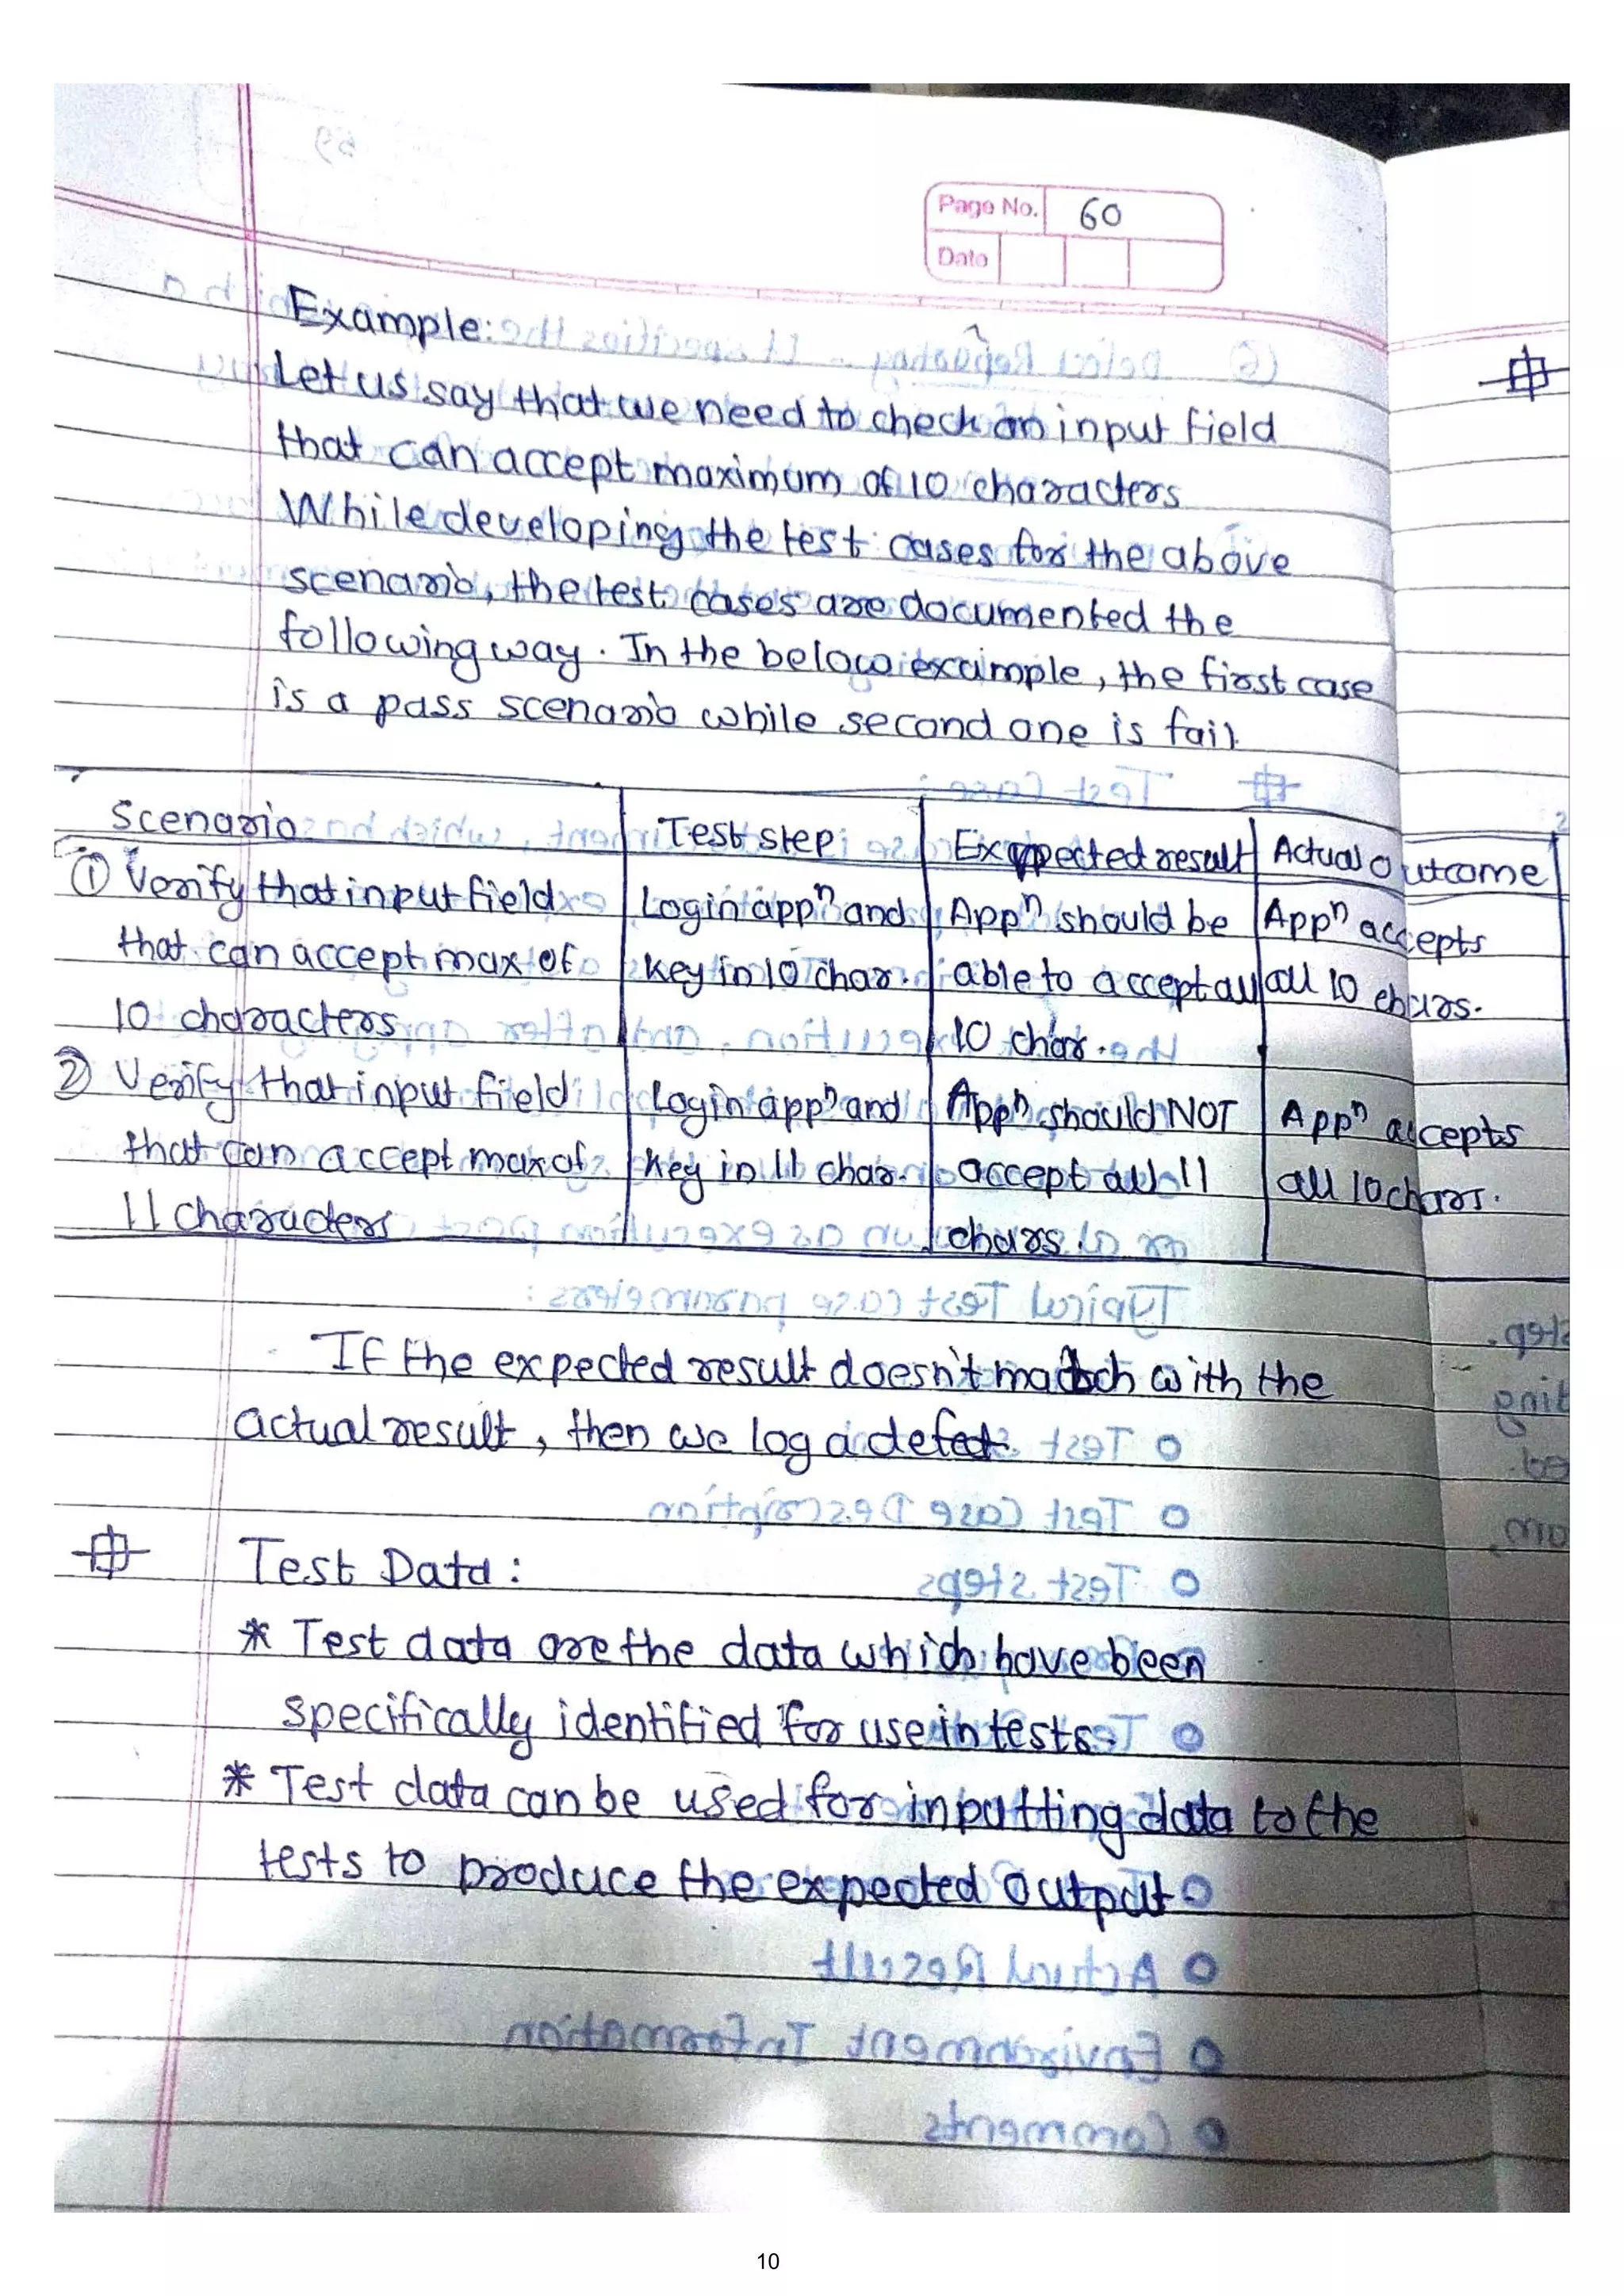 Page No. 60
Date
Example:
Let us say that we need to check an input field
that can accept maximum of 10 characters
While developing the test cases for the above
scenario, the test cases are documented the
following way. In the below example, the first case
is a pass scenario while second one is fail.
Scenario | Test step | Expected result | Actual outcome
① Verify that input field | Login appⁿ and | Appⁿ should be | Appⁿ accepts
that can accept max of | key in 10 char. | able to accept all | all 10 chars.
10 characters | | 10 char. |
② Verify that input field | Login appⁿ and | Appⁿ should NOT | Appⁿ accepts
that can accept max of | key in 11 char. | accept all 11 | all 10 chars.
11 characters | | chars. |
If the expected result doesn't match with the
actual result, then we log a defect
Test Data:
* Test data are the data which have been
specifically identified for use in tests.
* Test data can be used for inputting data to the
tests to produce the expected output
10